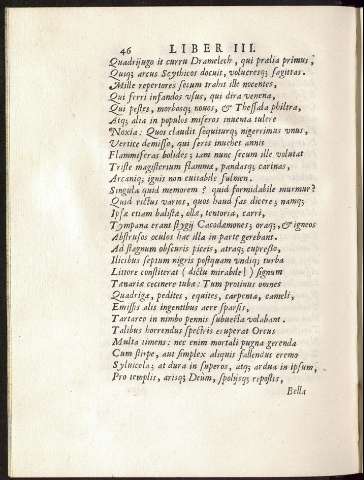 46 LIBER III.
Quadrijugo it curru Dramelech, qui prælia primus,
Quusq; arcus Scythicos docuit, volucresq; sagittas.
Mille repertores secum trahit ille nocentes,
Qui ferri infandos vsus, qui dira venena,
Qui pestes, morbosq; nouos, & Thessala philtra,
Atq; alia in populos miseros inuenta tulere
Noxia: Quos claudit sequiturq; nigerrimus vnus,
Vertice demisso, qui seris inuehet annis
Flammiferas bolides; iam nunc secum ille volutat
Triste magisterium flammæ, pandasq; carinas,
Arcaniq; ignis non euitabile fulmen.
Singula quid memorem? quid formidabile murmur?
Quid rictus varios, quos haud fas dicere; namq;
Ipsæ etiam balistæ, olla, tentoria, carri,
Tympana erant stygij Cacodæmones; oraq;, & igneos
Abstrusos oculos hac illa in parte gerebant.
Ad stagnum obscuris piceis, atraq; cupresso,
Ilicibus septum nigris postquam vndiq; turba
Littore constiterat (dictu mirabile!) signum
Tænariæ cecinere tubæ: Tum protinus omnes
Quadrigæ, pedites, equites, carpenta, cameli,
Emissis alis ingentibus aere sparsis,
Tartareo in nimbo pennis subuecta volabant.
Talibus horrendus spectris exuperat Orcus
Multa timens: nec enim mortali pugna gerenda
Cum stirpe, aut simplex aliquis fallendus eremo
Syluicola; at dura in superos, atq; ardua in ipsum,
Pro templis, arisq; Deûm, spolijsq; repostis,
Bella